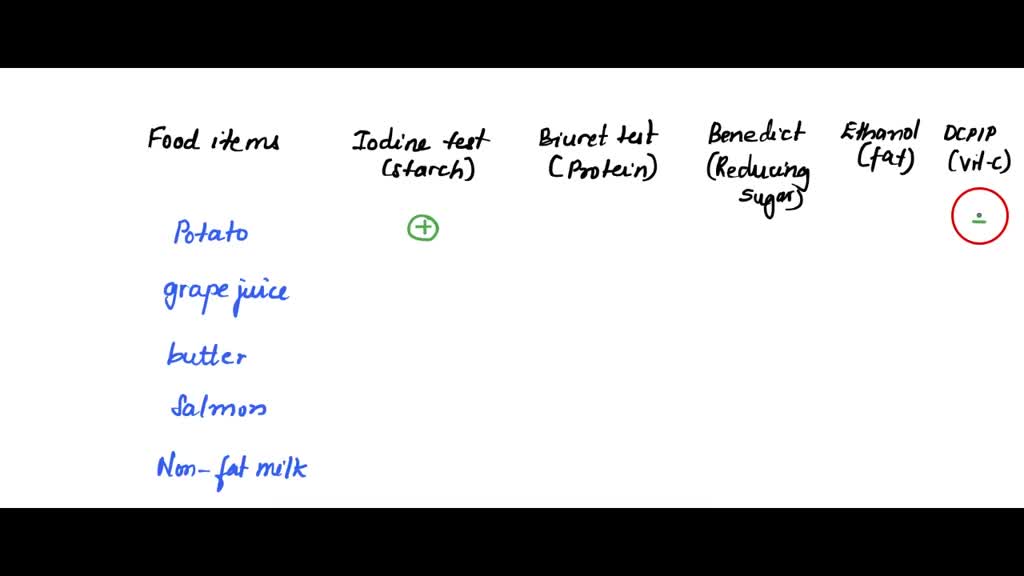 Food items Iodine test Biuret test Benedict Ethanol DCPIP
(starch) (Protein) (Reducing sugar) (fat) (Vit-c)
Potato + -
grape juice
butter
Salmon
Non-fat milk